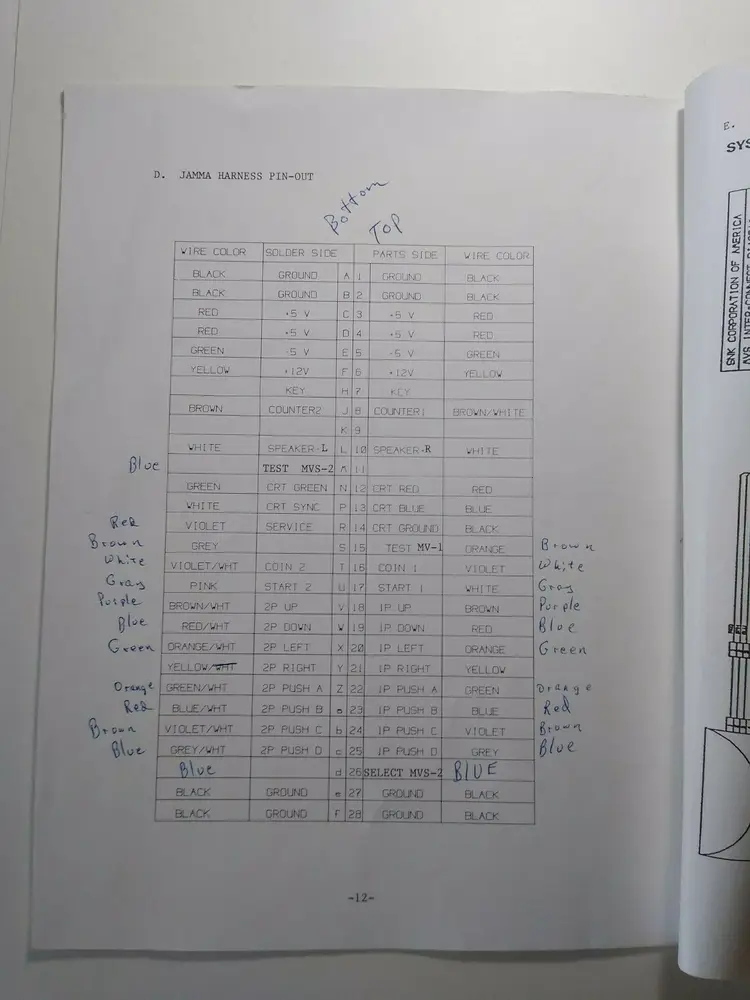 E.
SYS
D. JAMMA HARNESS PIN-OUT
Bottom
TOP
WIRE COLOR SOLDER SIDE PARTS SIDE WIRE COLOR
BLACK GROUND A 1 GROUND BLACK
BLACK GROUND B 2 GROUND BLACK
RED +5 V C 3 +5 V RED
RED +5 V D 4 +5 V RED
GREEN -5 V E 5 -5 V GREEN
YELLOW +12V F 6 +12V YELLOW
KEY H 7 KEY
BROWN COUNTER2 J 8 COUNTER1 BROWN/WHITE
K 9
WHITE SPEAKER-L L 10 SPEAKER-R WHITE
Blue TEST MVS-2 11
GREEN CRT GREEN N 12 CRT RED RED
WHITE CRT SYNC P 13 CRT BLUE BLUE
Red VIOLET SERVICE R 14 CRT GROUND BLACK
Brown GREY S 15 TEST MV-1 ORANGE Brown
White VIOLET/WHT COIN 2 T 16 COIN 1 VIOLET White
Gray PINK START 2 U 17 START 1 WHITE Gray
Purple BROWN/WHT 2P UP V 18 1P UP BROWN Purple
Blue RED/WHT 2P DOWN W 19 1P DOWN RED Blue
Green ORANGE/WHT 2P LEFT X 20 1P LEFT ORANGE Green
YELLOW/WHT 2P RIGHT Y 21 1P RIGHT YELLOW
Orange GREEN/WHT 2P PUSH A Z 22 1P PUSH A GREEN Orange
Red BLUE/WHT 2P PUSH B a 23 1P PUSH B BLUE Red
Brown VIOLET/WHT 2P PUSH C b 24 1P PUSH C VIOLET Brown
Blue GREY/WHT 2P PUSH D c 25 1P PUSH D GREY Blue
Blue d 26 SELECT MVS-2 BLUE
BLACK GROUND e 27 GROUND BLACK
BLACK GROUND F 28 GROUND BLACK
-12-
SNK CORPORATION OF AMERICA